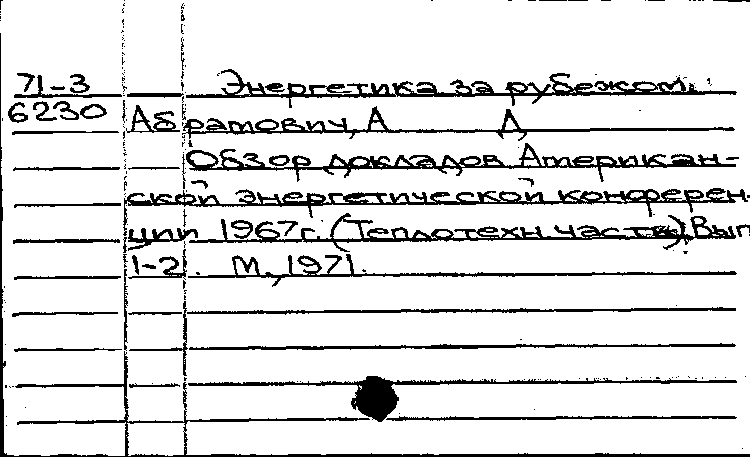 71-3 Энергетика за рубежом.
6230 Абрамович, А Д
Обзор докладов Американ-
ской энергетической конферен-
ции 1967г. (Теплотехн. часть). Вып
1-2. М., 1971.